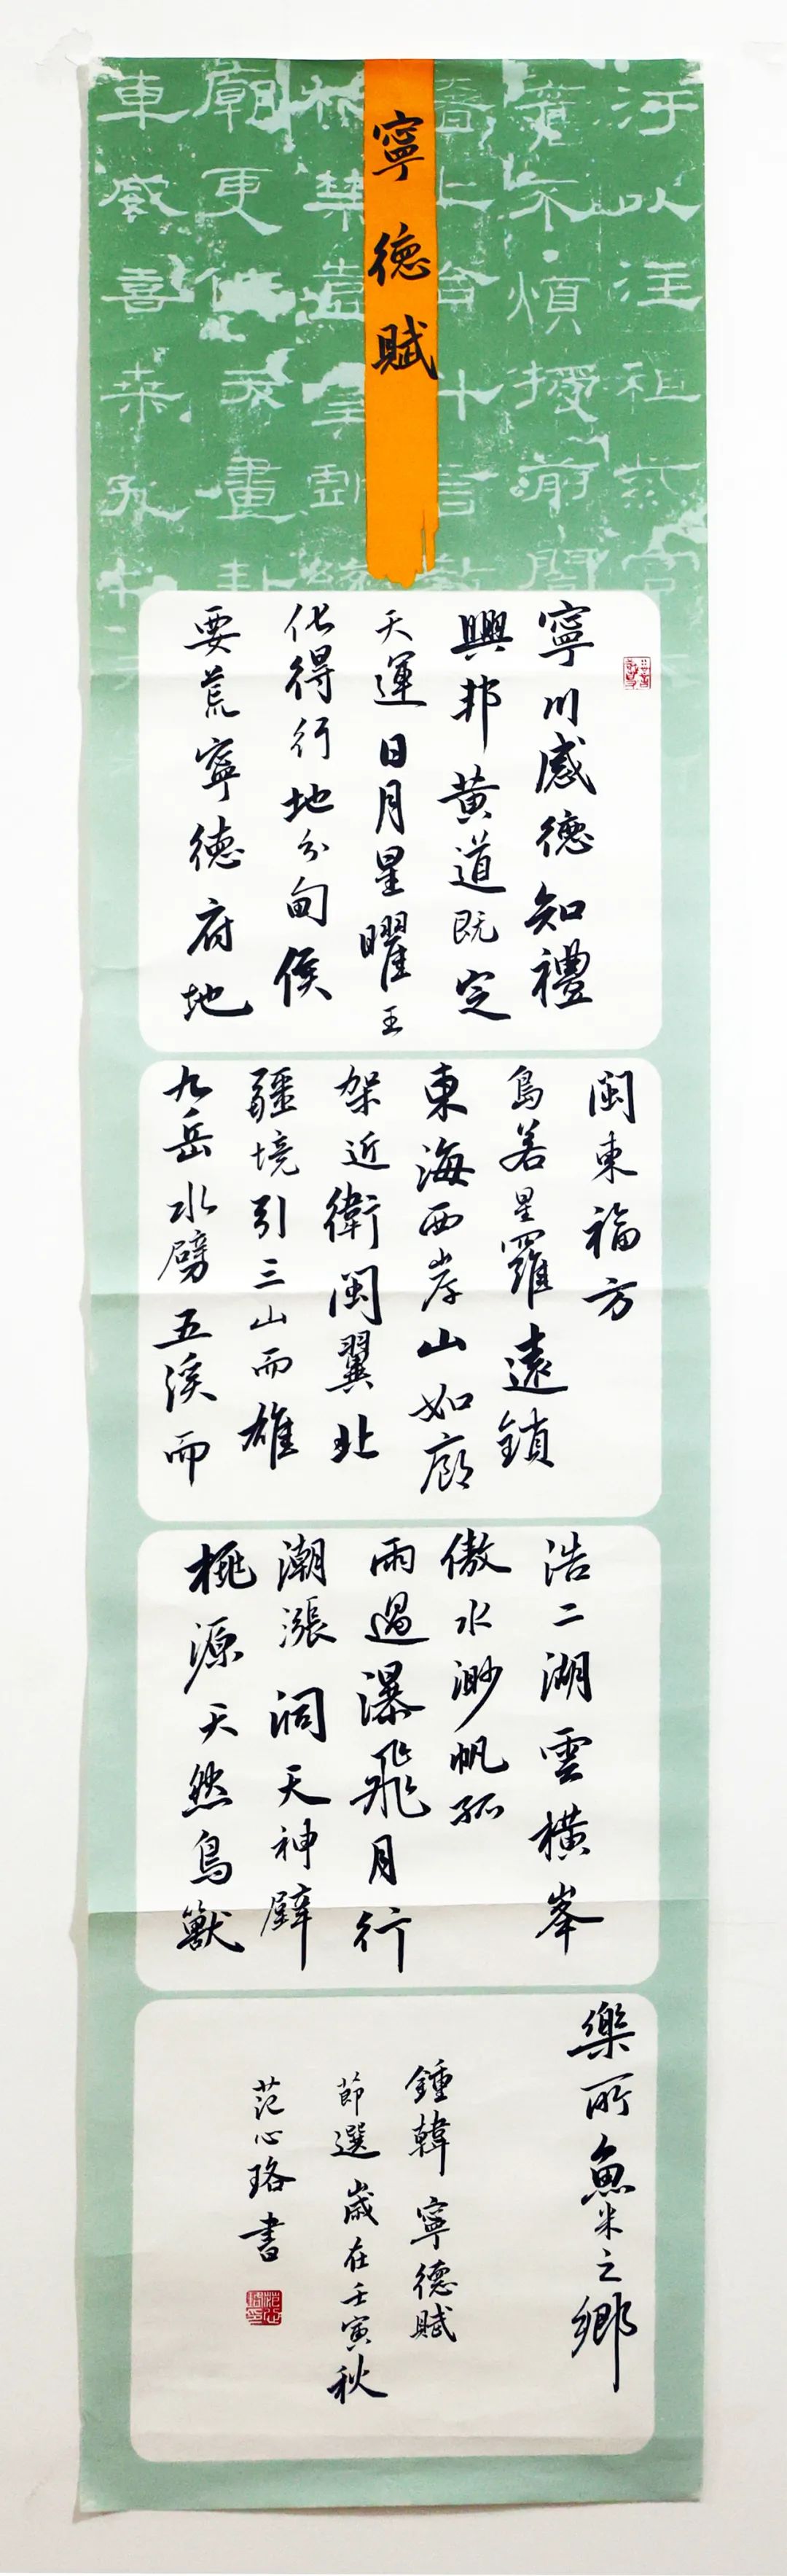 寧德賦
寧川感德知禮
興邦黃道既定
天運日月星曜王
化得行地分甸侯
要荒寧德府地
閩東福方
島若星羅遠鎖
東海西岸山如廊
架近衛閩翼北
疆境引三山而雄
九岳水劈五溪而
浩二湖雲橫峯
傲水渺帆孤
雨過瀑飛月行
潮漲洞天神壁
桃源天然鳥獸
樂所魚米之鄉
鍾韓 寧德賦
節選 歲在壬寅秋
范心珞書